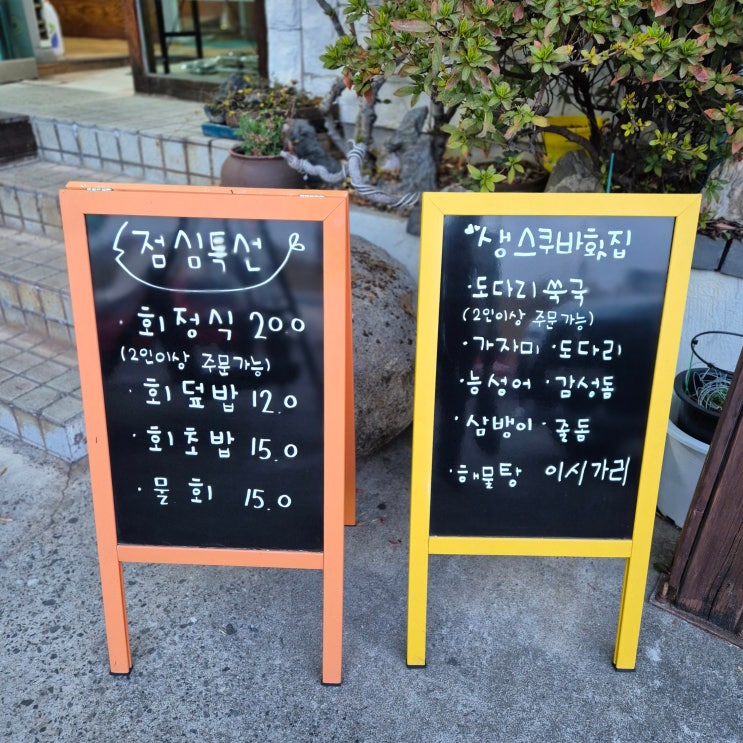 점심특선
· 회정식 20.0
(2인이상 주문가능)
· 회덮밥 12.0
· 회초밥 15.0
· 물회 15.0
생스쿠바횟집
· 도다리쑥국
(2인이상 주문가능)
· 가자미 · 도다리
· 능성어 · 감성돔
· 삼뱅이 · 줄돔
· 해물탕 이시가리